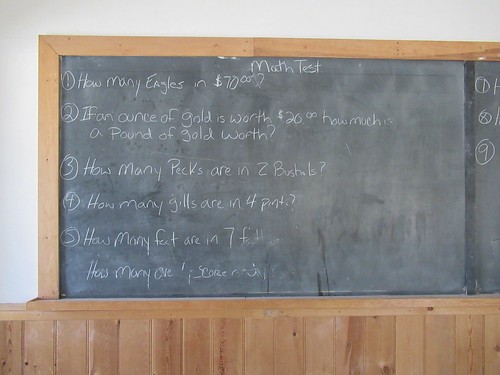 Math Test
① How many Eagles in $70.00?
② If an ounce of gold is worth $20.00 how much is
a Pound of gold worth?
③ How many Pecks are in 2 Bushels?
④ How many gills are in 4 pints?
⑤ How many feet are in 7
How Many are
① H
⑧
⑨